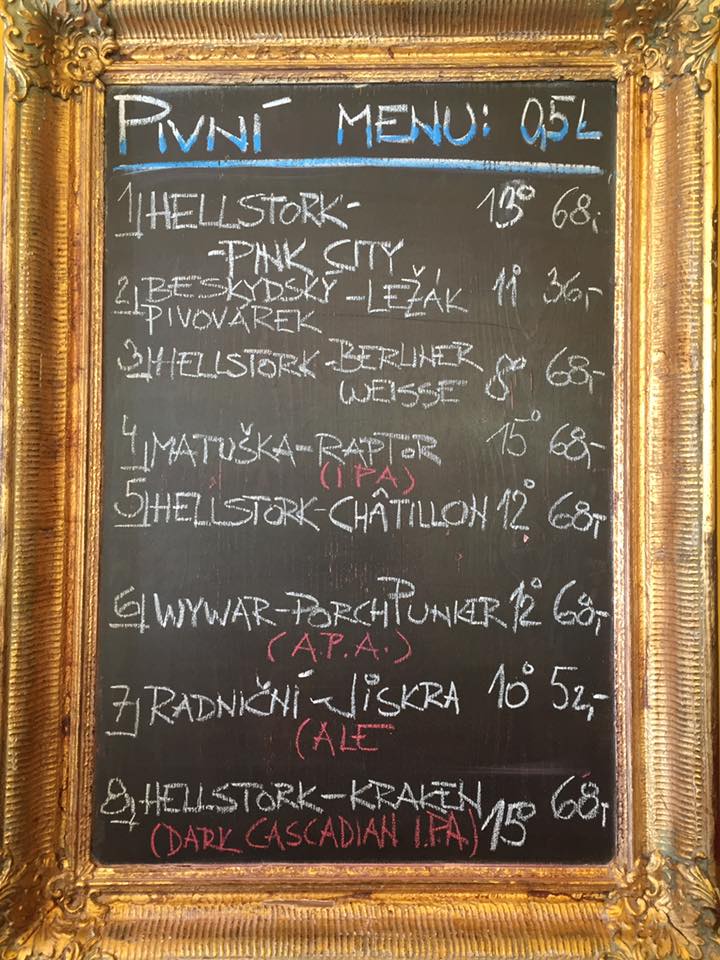 PIVNÍ MENU: 0,5L
1) HELLSTORK- 13° 68,-
-PINK CITY
2) BESKYDSKÝ -LEŽÁK 11° 36,-
PIVOVÁREK
3) HELLSTORK-BERLINER 8° 68,-
WEISSE
4) MATUŠKA-RAPTOR 15° 68,-
(IPA)
5) HELLSTORK-CHÂTILLON 12° 68,-
6) WYWAR-PORCHPUNKER 12° 68,-
(A.P.A.)
7) RADNIČNÍ-JISKRA 10° 52,-
(ALE
8) HELLSTORK-KRAKEN 15° 68,-
(DARK CASCADIAN I.P.A.)